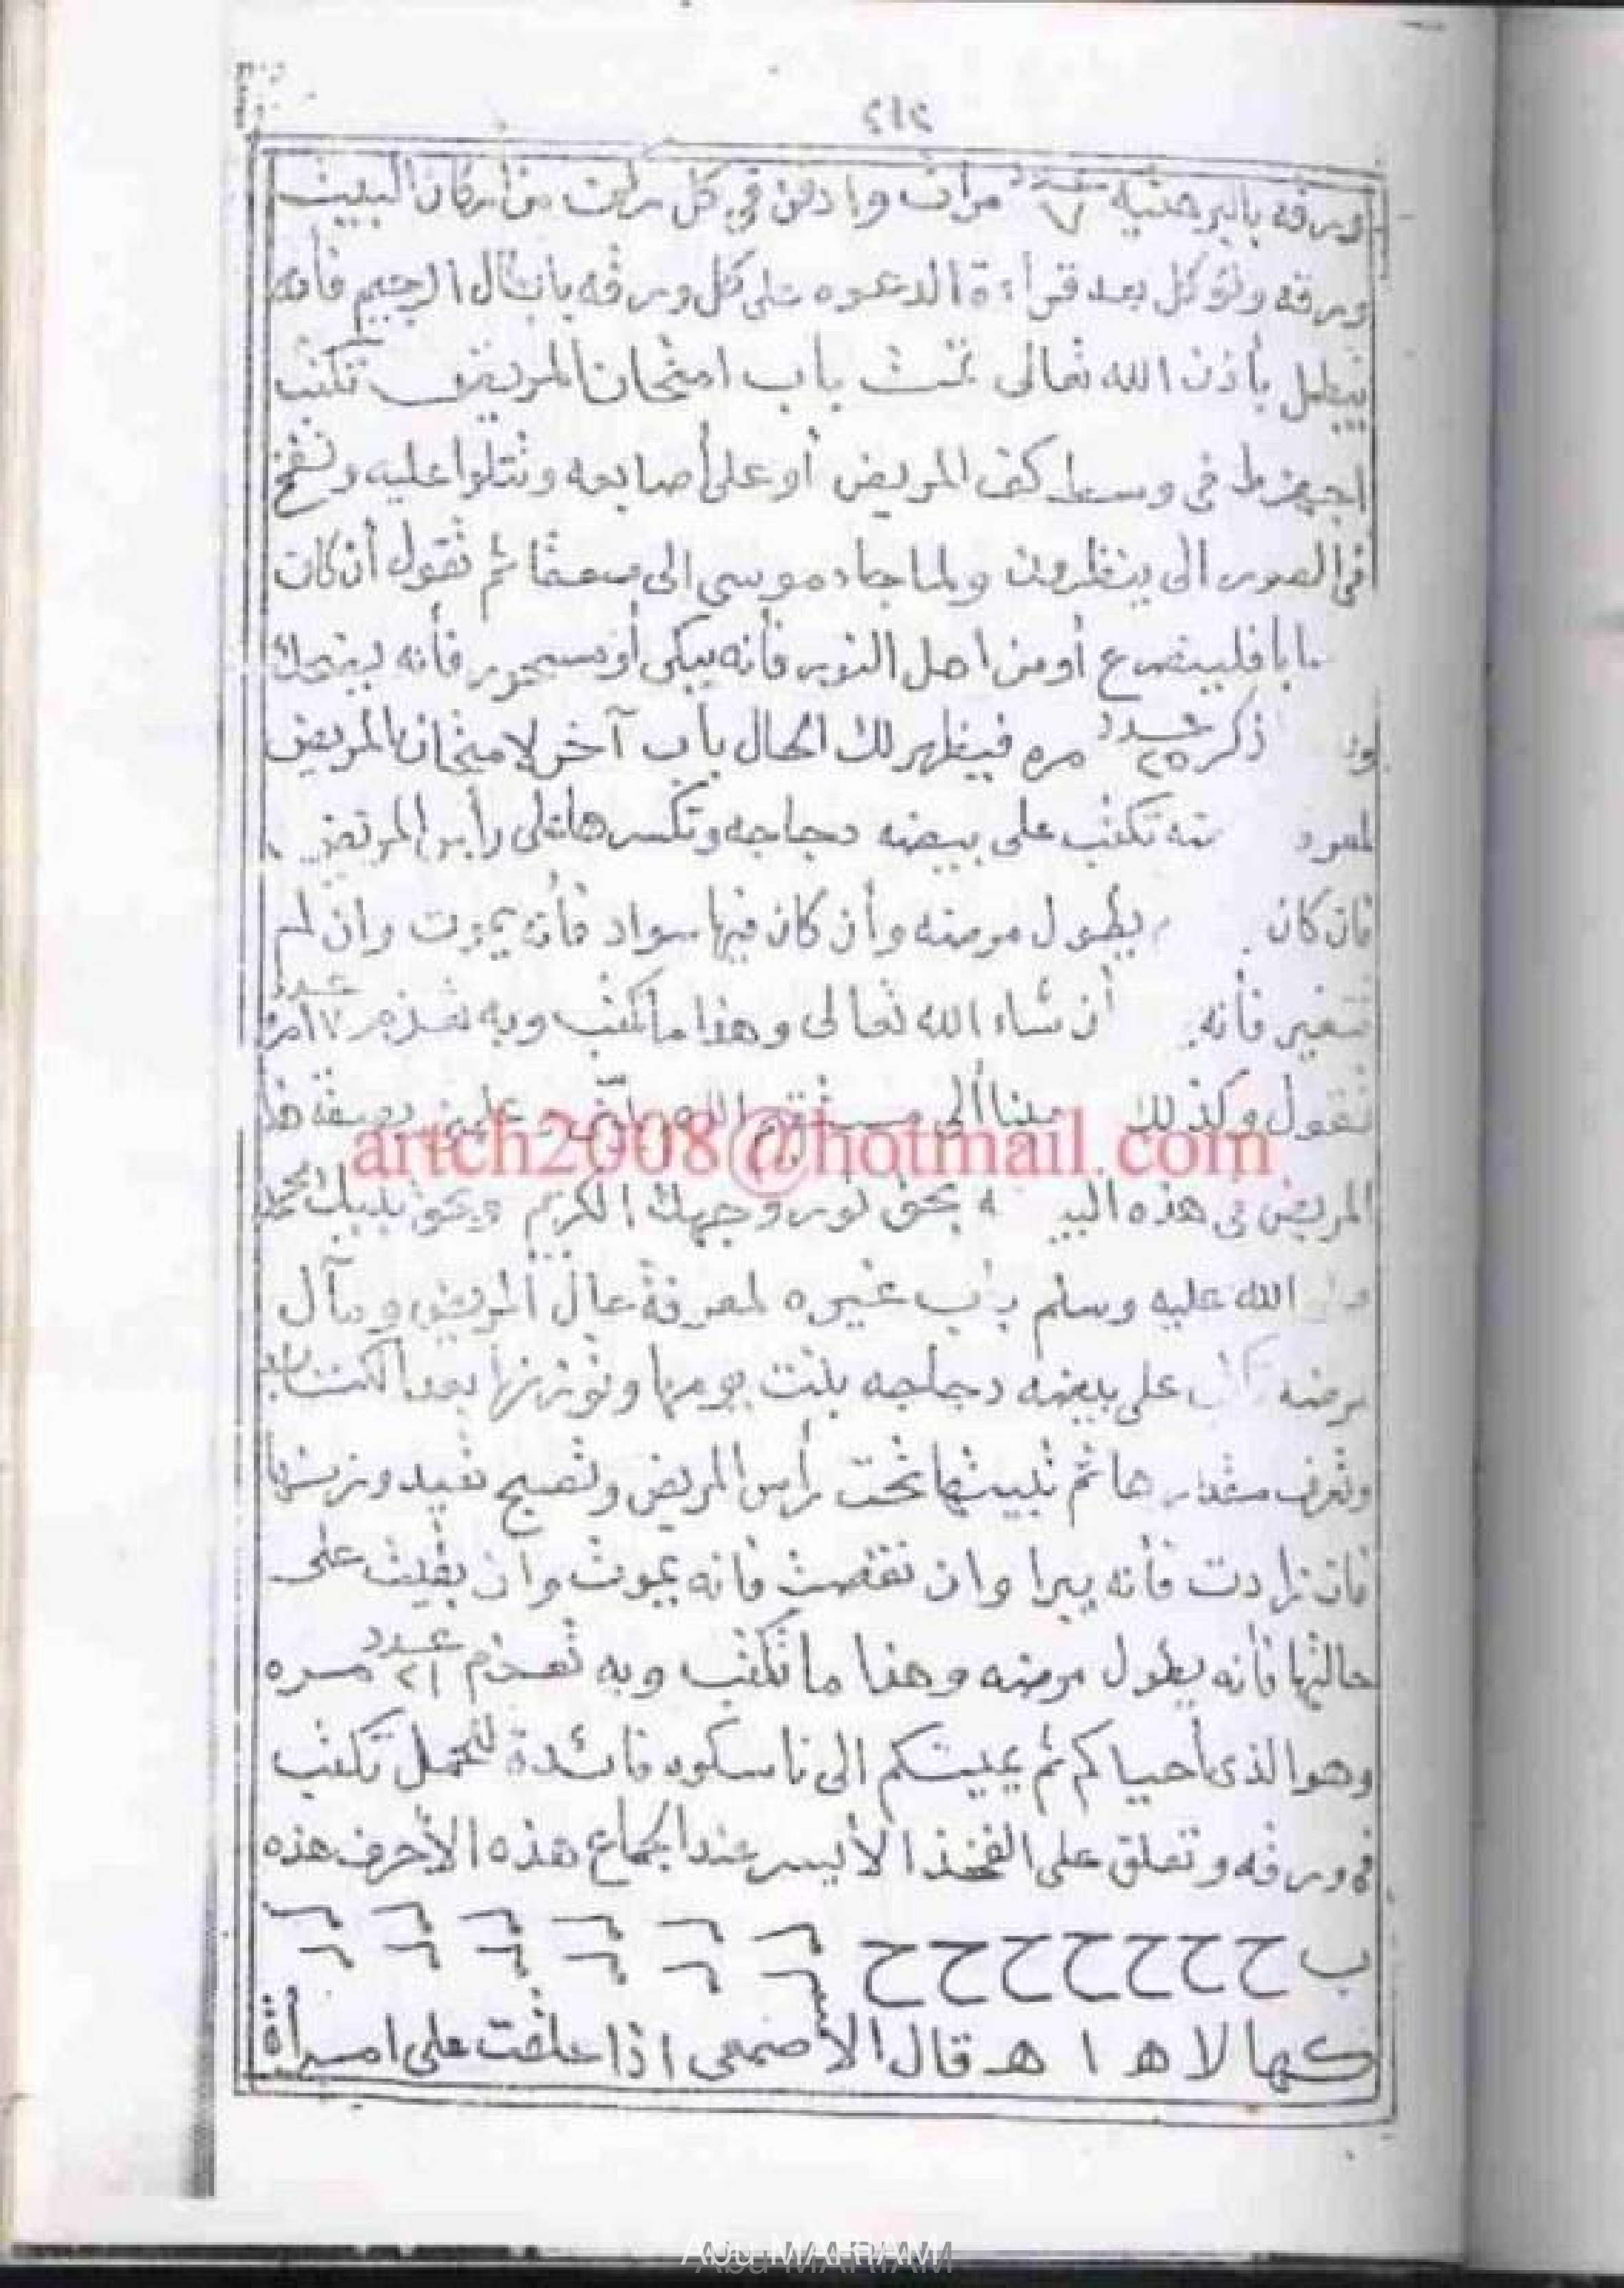 ٢١٢
ورقه بالبرهتيه عدد ٧ مرات وادفن في كل ركن من اركان البيت
ورقه وتوكل بعد قراءة الدعوه على كل ورقه بابطال الرجيم فأنه
يبطل بأذن الله تعالى تمت باب امتحان المريض تكتب
اجهزط في وسط كف المريض أو على أصابعه وتتلوا عليه ونفخ
في الصور الى ينظرون ولما جاء موسى الى صعقا ثم تقول أن كان
فلينصرع أو من اهل النور فأنه يبكى أو مسحور فأنه يضحك
ذكر عدد ٢٥ مره فيظهر لك الحال باب آخر لامتحان المريض
تكتب على بيضه دجاجه وتكسرها على رأس المريض
فان كان يطول مرضه وأن كان فيها سواد فأنه يموت وان لم
تتغير فأنه أن شاء الله تعالى وهذا ما تكتب وبه تعزم عدد ١٧
تقول وكذلك الى
artch2008@hotmail.com
المريض في هذه البيـ ـه بحق نور وجهك الكريم وبحق نبيك محمد
الله عليه وسلم باب غيره لمعرفة حال المريض ومآل
مرضه على بيضه دجاجه بنت يومها وتوزنها بعد الكتابه
وتعرف مقدارها ثم تبيتها تحت رأس المريض وتصبح تعيد وزنها
فان زادت فأنه يبرا وان نقصت فانه يموت وان بقيت على
حالتها فأنه يطول مرضه وهذا ما تكتب وبه تعزم عدد ٢١ مره
وهوا الذى أحياكم ثم يميتكم الى فائدة للحمل تكتب
فى ورقه وتعلق على الفخذ الأيسر عند الجماع هذه الأحرف هذه
ب ح ح ح ح ح ح ح
كهالا ه ا ه قال الأصمعى اذا علقت على امرأة
Abu MARIAM